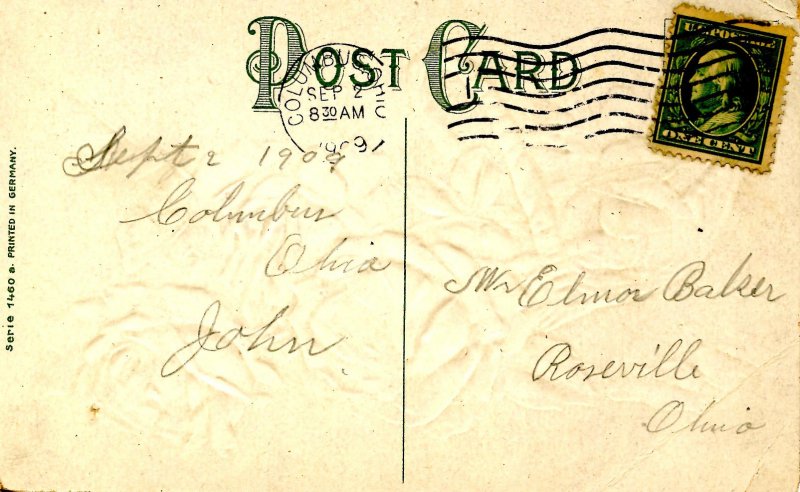 POST CARD
COLUMBUS, OHIO
SEP 2
8 30 AM
1909
U.S. POSTAGE
ONE CENT
Sept 2 1909
Columbus
Ohio
John
Mr Elmor Baker
Roseville
Ohio
Serie 1460 a. PRINTED IN GERMANY.